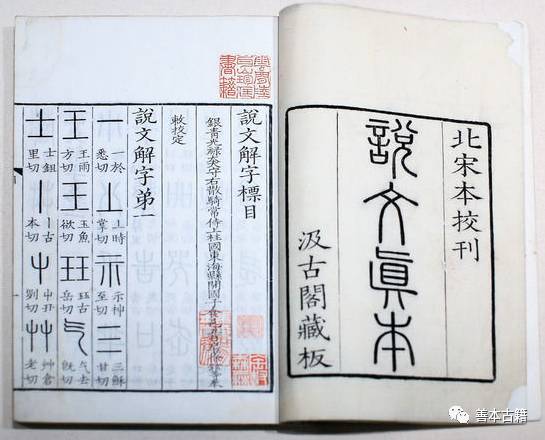 北宋本校刊
說文眞本
汲古閣藏板
說文解字標目
銀青光祿大夫守右散騎常侍上柱國東海縣開國子食邑五百戶臣徐鉉等奉
敕校定
說文解字第一
一 一於悉切 丄 丄時掌切 示 示神至切 三 三穌甘切
王 王雨方切 王 玉魚欲切 玨 玨古岳切 气 气去旣切
士 士鉏里切 丨 丨古本切 屮 屮丑劉切 艸 艸倉老切
善本古籍